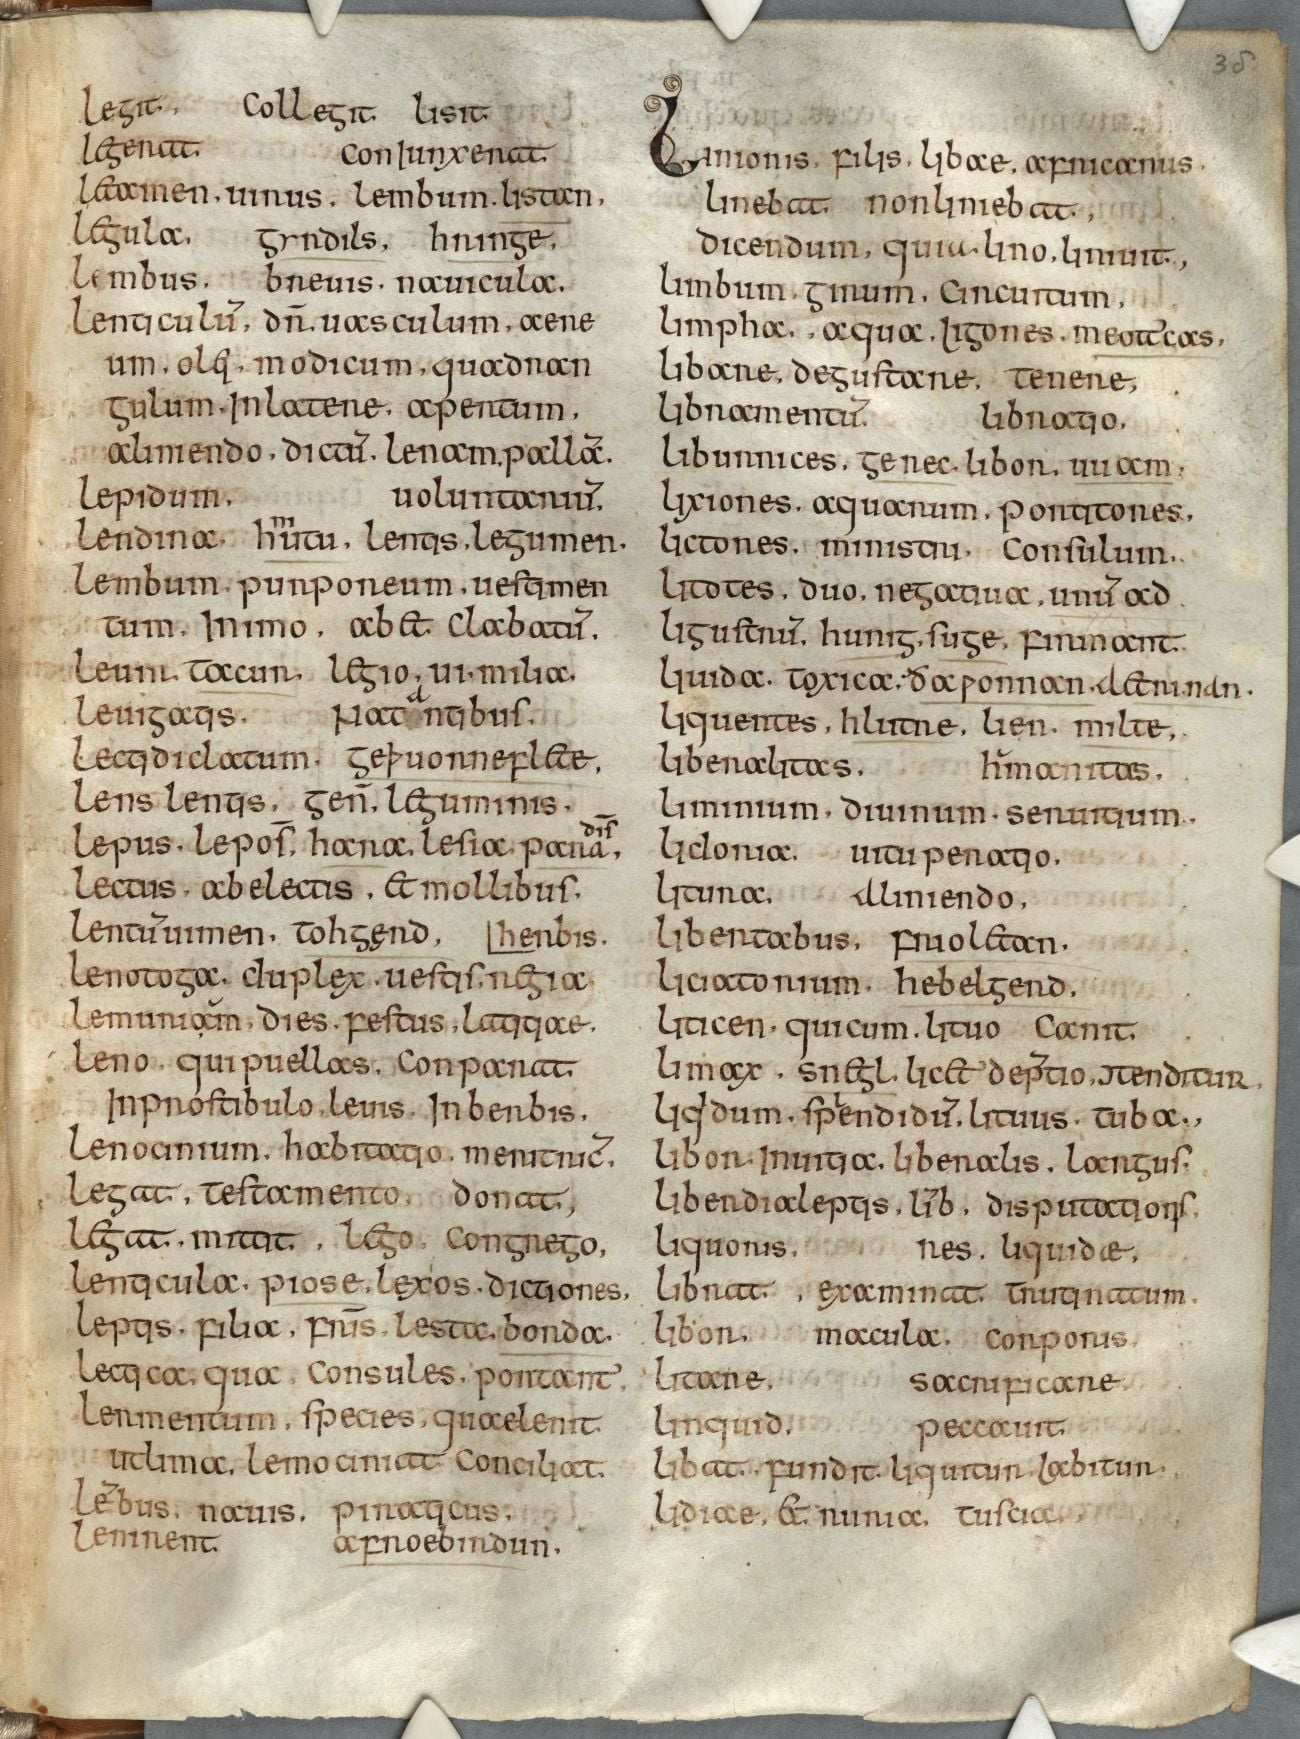 38
legit. collegit lisit.
legerat. coniunxerat.
letamen. uinus. lembum. listan.
legula. gyrdils, hringe,
lembus. breuis. nauicula.
lenticulū. dñ. uasculum. aere
um. olei. modicum. quadran
gulum. In latere. apertum.
aliniendo. dictū. lenam. pallā.
lepidum. uoluntariū.
lendina. hnitu. lentis. legumen.
lembum. purporeum. uestimen
tum. In imo. abet. clabatū.
leuir. tacur. legio. ui. milia.
leuigatis. flatantibus.
lectidiclatum. geþuorne flete,
lens lentis. geñ. leguminis.
lepus. leporis. hara. lesia. paradis.
lectus. ab electis. et mollibus.
lentū uimen. tohgerd,
herbis.
leno toga. duplex. uestis. regia
lemuriarum. dies. festus. latitiae.
leno. qui puellas. conparat.
In prostibulo. leuis. In berbis.
lenocinium. habitatio. meritric.
legat, testamento. donat,
legat. mittit. lego. congrego,
lenticula. piose. lexos. dictiones,
leptis. filia. fris. lesta. borda.
lectica. qua. consules. portant.
lenimentum. species. quae lenit
ut lima. lenocinat conciliat.
lebus. nauis. piraticus.
leninent. afroebirdun.
Linionis. filis. libae. africanus.
linebat. non liniebat.,
dicendum, quia. lino. liniuit.,
limbum. girum. circuitum,
limpha. aqua. ligones. meottucas,
libare, degustare, tenere,
libramentū. libratio.
liburnices. gerec. libor. uuam.
lixiones. aquarum. portitores.
lictores. ministri. consulum.
litotes. duo. negatiua. unū ad
ligustrū. hunig. suge. firmant.
liuida. toxica. ða ponnan. aetrinan.
liquentes, hlutre. lien. milte,
liberalitas. hūmanitas.
liminium. diuinum. seruitium.
licionia. uituperatio.
litura. a liniendo,
libertabus, frioletan.
liciatorium. hebelgerd.
liticen. qui cum. lituo canit.
limax. snegl. licet deptio. ostenditur.
liqidum. splendidū. lituus. tuba.,
libor. Inuitia. liberalis. largus.
liber dialeptis. lib. disputationis.
liquoris. res. liquide,
librat. examinat trutinatum.
libor. macula. corporis.
litare. sacrificare
linquid. peccauit
libat. fundit. liquitur. labitur.
lidiae. et nuria. tuscia.